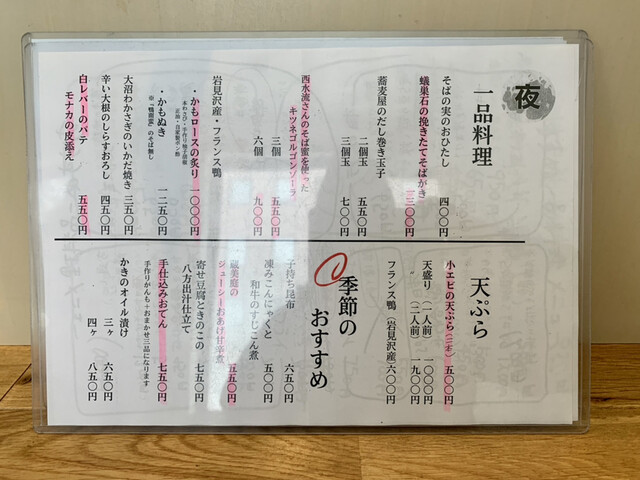 夜
一品料理
そばの実のおひたし 四〇〇円
蟻巣石の挽きたてそばがき
蕎麦屋のだし巻き玉子
二個玉 五五〇円
三個玉 七〇〇円
西水流さんのそば蜜を使った
キツネゴルゴンゾーラ
三個 五五〇円
六個 九〇〇円
岩見沢産・フランス鴨
・かもロースの炙り 一〇〇〇円
・かもぬき 一二五〇円
※“鴨南蛮”のそば無し
大沼わかさぎのいかだ焼き 三五〇円
辛い大根のしらすおろし 四五〇円
白レバーのパテ
モナカの皮添え 五五〇円
天ぷら
小エビの天ぷら（二本） 五〇〇円
天盛り（一人前） 一〇〇〇円
（二人前） 一九〇〇円
フランス鴨（岩見沢産） 六〇〇円
季節の
おすすめ
子持ち昆布 六五〇円
凍みこんにゃくと
和牛のすじこん煮 五〇〇円
蔵美庭の
ジューシーおあげ甘辛煮 五五〇円
寄せ豆腐ときのこの
八方出汁仕立て 七五〇円
手仕込みおでん 七五〇円
手作りがんも＋おまかせ三品になります
かきのオイル漬け
三ヶ 六五〇円
四ヶ 八五〇円